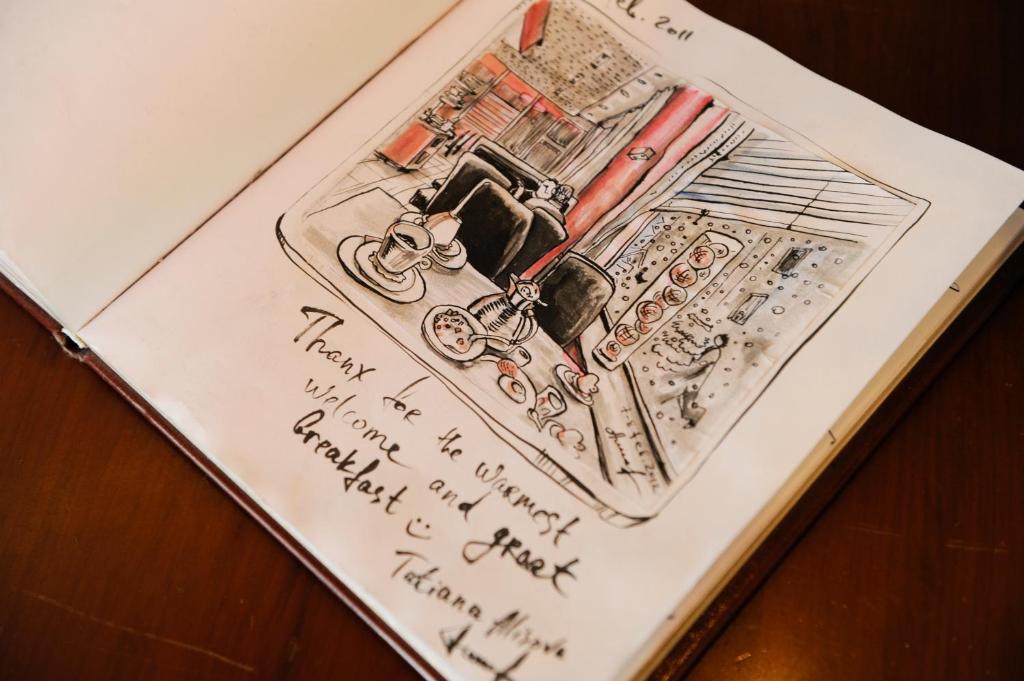 eb. 2011
Thanx for the warmest
welcome and great
breakfast :)
Tatiana